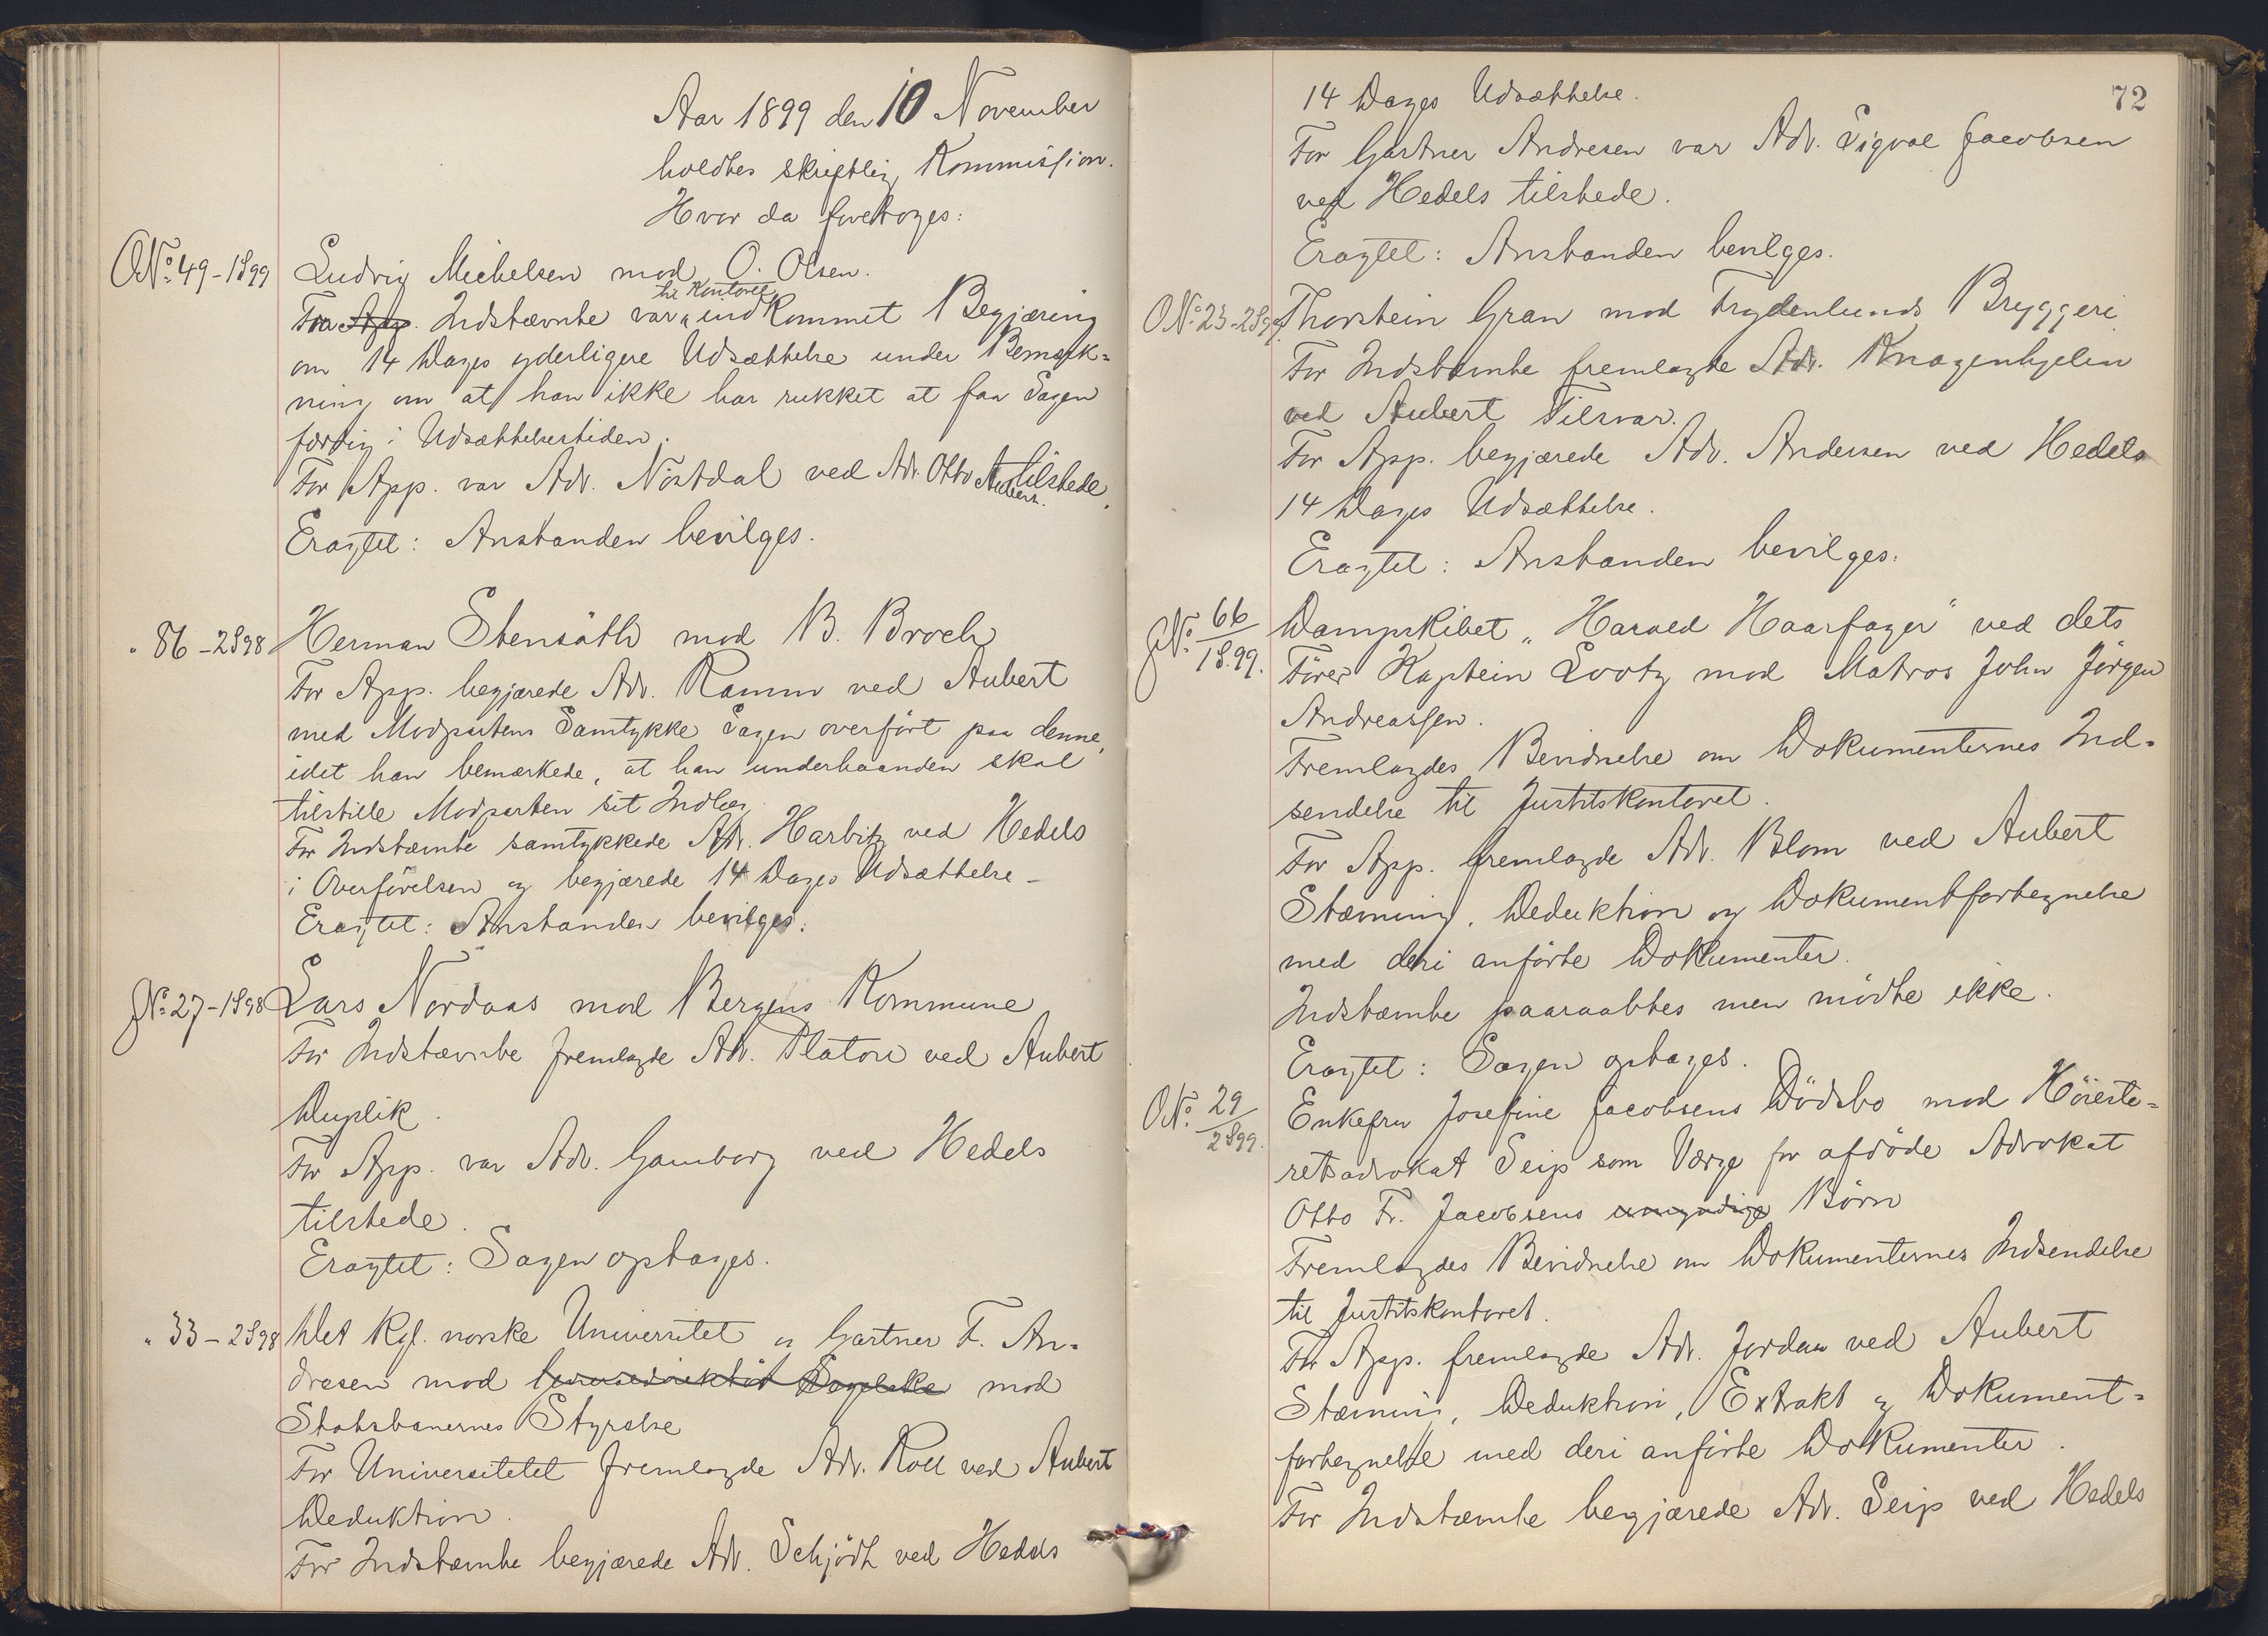 Aar 1899 den 10 November
holdtes skriftlig Kommission.
Hvor da foretoges:
O№ 49-1S99 Ludvig Michelsen mod O. Olsen.
til Kontoret
Fra App. Indstævnte var indkommet Begjæring
om 14 Dages yderligere Udsættelse under Bemærk=
ning om at han ikke har rukket at faa Sagen
færdig i Udsættelsestiden.
For App. var Adv. Nöstdal ved Adv. Otto Aubert tilstede.
Eragtet: Anstanden bevilges.
" 86-2S98 Herman Stensäth mod B. Broch
For App. begjærede Adv. Ramm ved Aubert
med Modpartens Samtykke Sagen overfört paa denne,
idet han bemærkede, at han underhaanden skal
tilstille Modparten sit Indlæg.
For Indstævnte samtykkede Adv. Harbitz ved Hedels
i Overförelsen og begjærede 14 Dages Udsættelse-
Eragtet: Anstanden bevilges.
J№ 27-1S98 Lars Nordaas mod Bergens Kommune
For Indstævnte fremlagde Adv. Platou ved Aubert
Duplik.
For App. var Adv. Gamborg ved Hedels
tilstede.
Eragtet: Sagen optages.
" 33-2S98 Det Kgl. norske Universitet og Gartner F. An=
dresen mod mod
Statsbanernes Styrelse
For Universitetet fremlagde Adv. Roll ved Aubert
Deduktion.
For Indstævnte begjærede Adv. Schjödt ved Hedels
72
14 Dages Udsættelse.
For Gartner Andresen var Adv. Sigval Jacobsen
ved Hedels tilstede.
Eragtet: Anstanden bevilges.
O№ 23-2S99 Thorstein Gran mod Frydenlunds Bryggeri
For Indstævnte fremlagde Adv. Knagenhjelm
ved Aubert Tilsvar.
For App. begjærede Adv. Andersen ved Hedels
14 Dages Udsættelse.
Eragtet: Anstanden bevilges.
J№ 66/1S.99. Dampskibet „Harald Haarfager" ved dets
Förer Kaptein Lootz mod Matros John Jörgen
Andreassen.
Fremlagdes Bevidnelse om Dokumenternes Ind=
sendelse til Justitskontoret.
For App. fremlagde Adv. Blom ved Aubert
Stævning, Deduktion og Dokumentfortegnelse
med deri anförte Dokumenter.
Indstævnte paaraabtes men mödte ikke.
Eragtet: Sagen optages.
O№ 29/2S99. Enkefru Josefine Jacobsens Dödsbo mod Höieste=
retsadvokat Seip som Værge for afdöde Advokat
Otto Fr. Jacobsens umyndige Börn
Fremlagdes Bevidnelse om Dokumenternes Indsendelse
til Justitskontoret.
For App. fremlagde Adv. Jordan ved Aubert
Stævning, Deduktion, Extrakt og Dokument=
fortegnelse med deri anförte Dokumenter.
For Indstævnte begjærede Adv. Seip ved Hedels